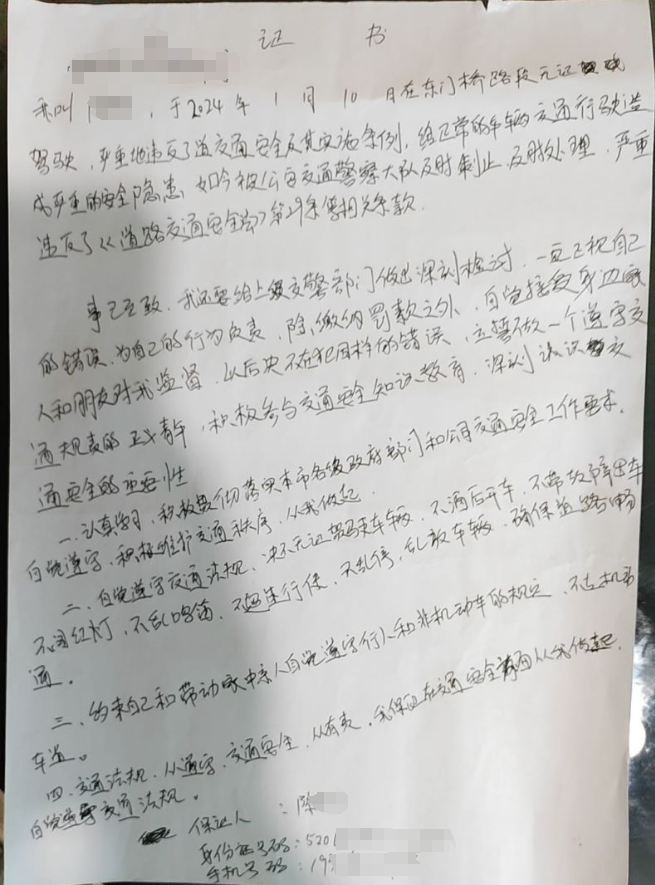 证 书
我叫 ，于2024年1月10日在东门桥路段无证
驾驶，严重地违反了道交通安全及其实施条例，给正常的车辆交通行驶造
成严重的安全隐患，如今被公安交通警察大队及时制止，及时处理，严重
违反了《道路交通安全法》第29条等相关条款.
事已至致，我还要给上级交警部门做出深刻检讨，一正己视自己
的错误，为自己的行为负责，除缴纳罚款之外，自觉接受身边家
人和朋友对我监督，以后决不在犯同样的错误，立誓做一个遵守交
通规表的正义青年，积极参与交通安全知识教育，深刻认识交
通安全的重要性
一.认真学习，积极贯彻落实本市各级政府部门和公司交通安全工作要求.
自觉遵守，积极维护交通秩序，从我做起.
二、自觉遵守交通法规，决不无证驾驶车辆，不酒后开车，不带故障出车
不闯红灯，不乱鸣笛，不逆生行使，不乱停，乱放车辆，确保道路畅
通。
三、约束自己和带动家中亲人自觉遵守行人和非机动车的规定，不占机动
车道。
四、交通法规，从遵守，交通安全，从有责，我保证在交通安全方面从我做起，
自觉遵守交通法规.
保证人：陈
身份证号码：520
手机号码：19